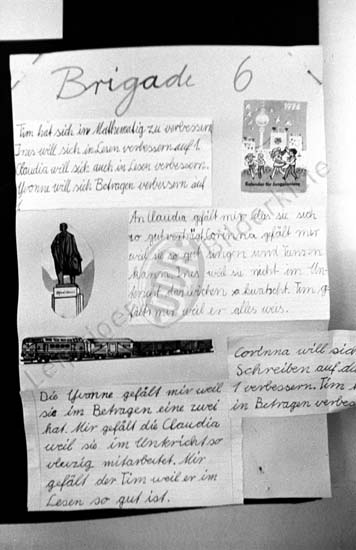 Brigade 6
Tim hat sich in Mathematig zu verbessern
Ines will sich in Lesen verbessern auf 1.
Claudia will sich auch in Lesen verbessern.
Yvonne will sich Betragen verbessern auf
1
1974
Kalender für Jungpioniere
An Claudia gefält mir das sie sich
so gut verträgt. Corinna gefält mir
weil sie so gut singen und Turnen
kann. Ines weil sie nicht im Un-
terricht dazwischen so kwatscht. Tim ge-
fält mir weil er alles weis.
Corinna will sich
Schreiben auf die
1 verbessern. Tim
in Betragen verbes
Die Yvonne gefält mir weil
sie im Betragen eine zwei
hat. Mir gefält die Claudia
weil sie im Unkricht so
vleizig mitarbeitet. Mir
gefält der Tim weil er im
Lesen so gut ist.